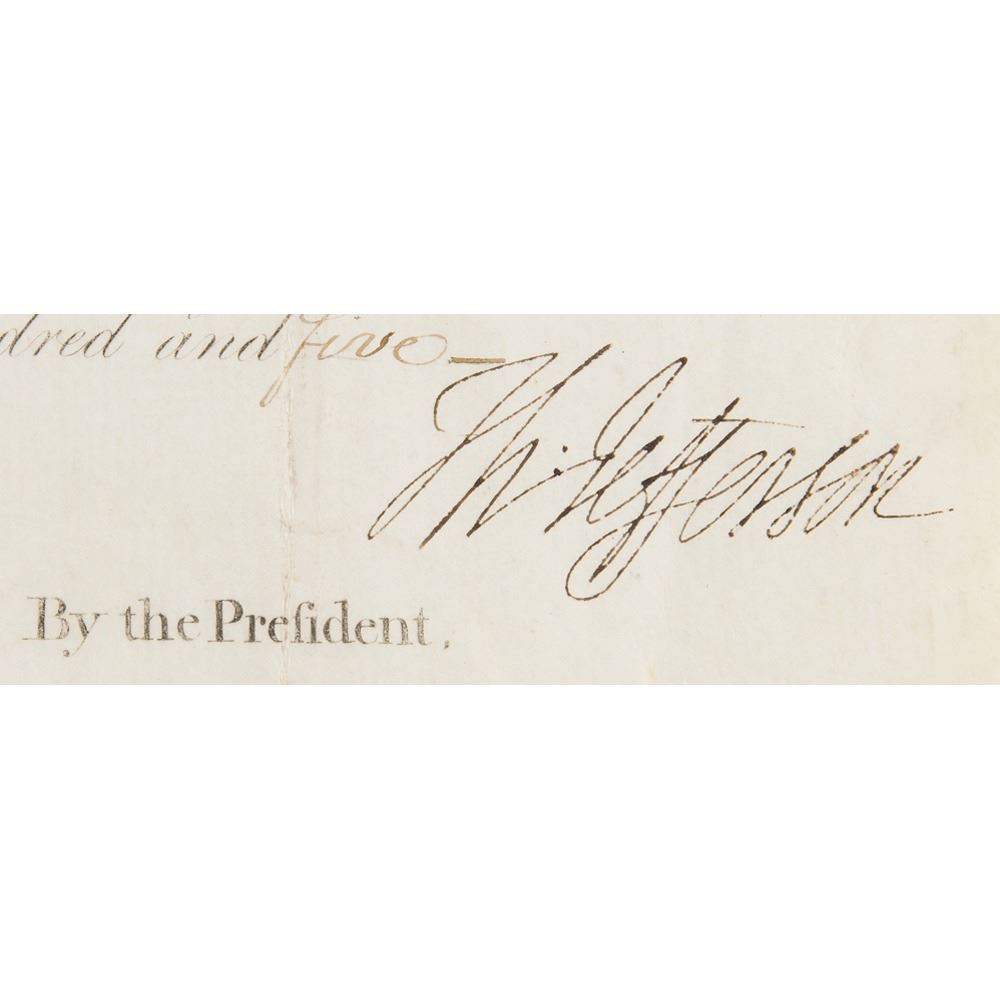 dred and five—
Th: Jefferson
By the Preſident,